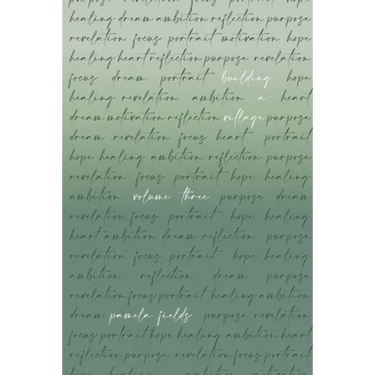 purpose revelation focus portrait hope
healing dream ambition reflection purpose
revelation focus portrait motivation hope
healing heart reflection purpose revelation
focus dream portrait building hope
healing revelation ambition a heart
dream motivation reflection village purpose
dream revelation focus heart portrait
hope healing ambition reflection purpose
revelation focus portrait hope healing
ambition volume three purpose dream
revelation focus portrait hope healing
heart ambition dream reflection purpose
revelation focus portrait hope healing
ambition reflection dream purpose
revelation focus portrait healing ambition
dream pamela fields purpose revelation
focus portrait hope healing ambition heart
reflection purpose dream revelation focus
portrait hope healing ambition